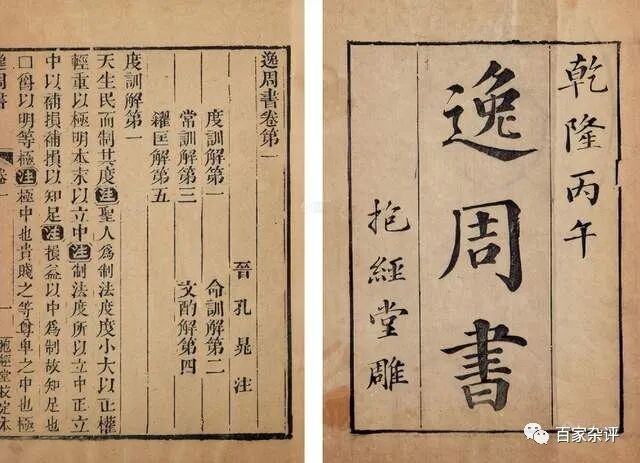 乾隆丙午
逸周書
抱經堂雕
逸周書卷第一
晉孔晁注
度訓解第一 命訓解第二
常訓解第三 文酌解第四
糴匡解第五
度訓解第一
天生民而制其度注聖人爲制法度度小大以正權
輕重以極明本末以立中注制法度所以立中正立
中以補損補損以知足注損益以中爲制故知足也
□爵以明等極注極中也貴賤之等尊卑之中也極
逸周書 卷一 一 抱經堂校定本
百家杂评